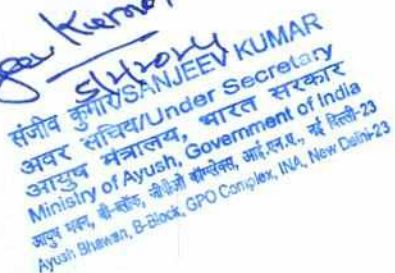 Kumar
संजीव कुमार/SANJEEV KUMAR
अवर सचिव/Under Secretary
आयुष मंत्रालय, भारत सरकार
Ministry of Ayush, Government of India
आयुष भवन, बी-ब्लॉक, जीपीओ कॉम्प्लेक्स, आई.एन.ए., नई दिल्ली-23
Ayush Bhawan, B-Block, GPO Complex, INA, New Delhi-23